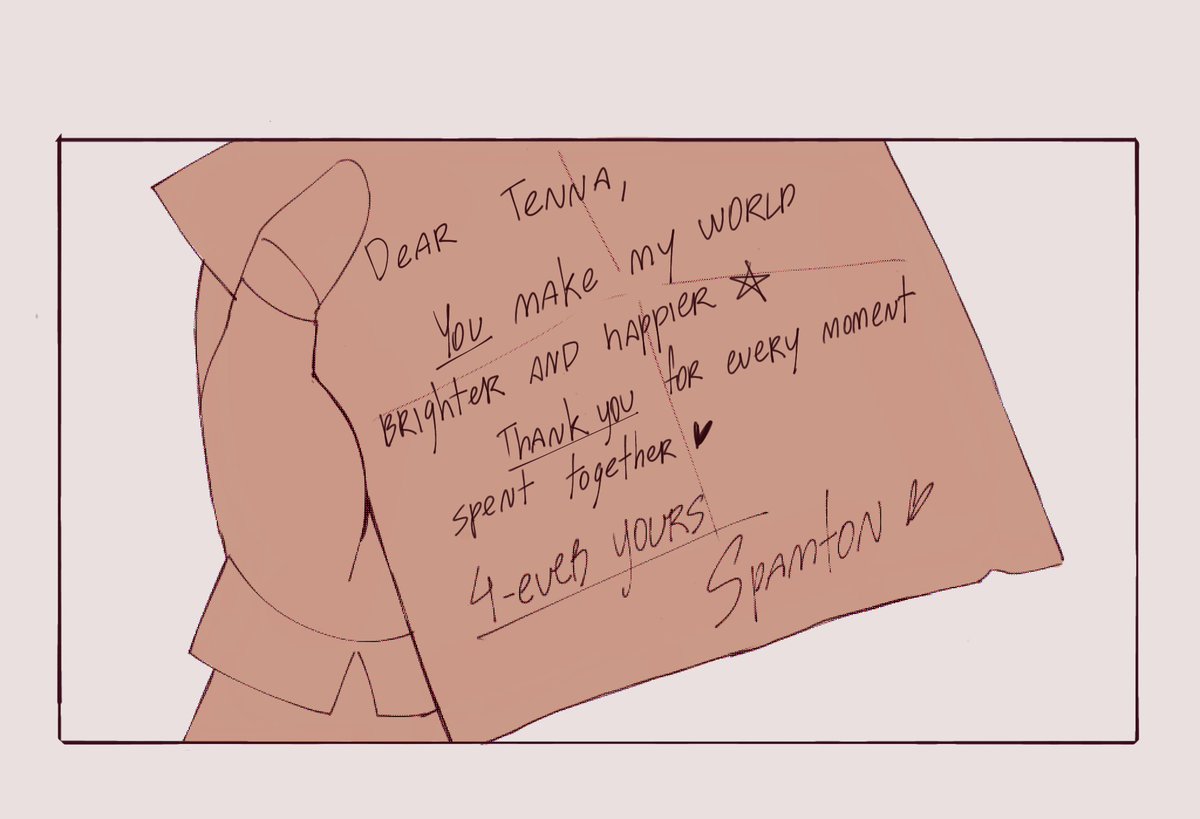 Dear Tenna,
You make my world
brighter and happier ☆
Thank you for every moment
spent together ♥
4-ever yours
Spamton ♡